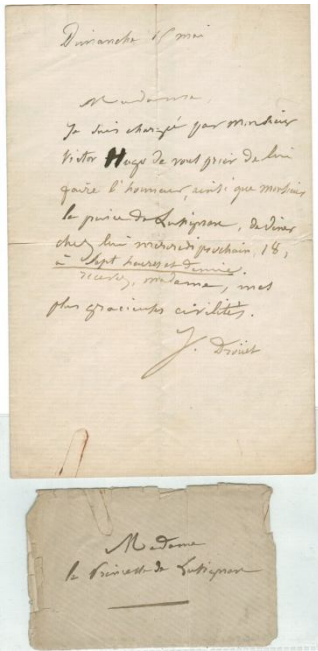 Dimanche 15 mai
Madame,
Je suis chargée par monsieur
Victor Hugo de vous prier de lui
faire l'honneur, ainsi que monsieur
le prince de Lusignan, de diner
chez lui mercredi prochain, 18,
à sept heures et demie.
recevez, madame, mes
plus gracieuses civilités.
J. Drouet
Madame
la Princesse de Lusignan